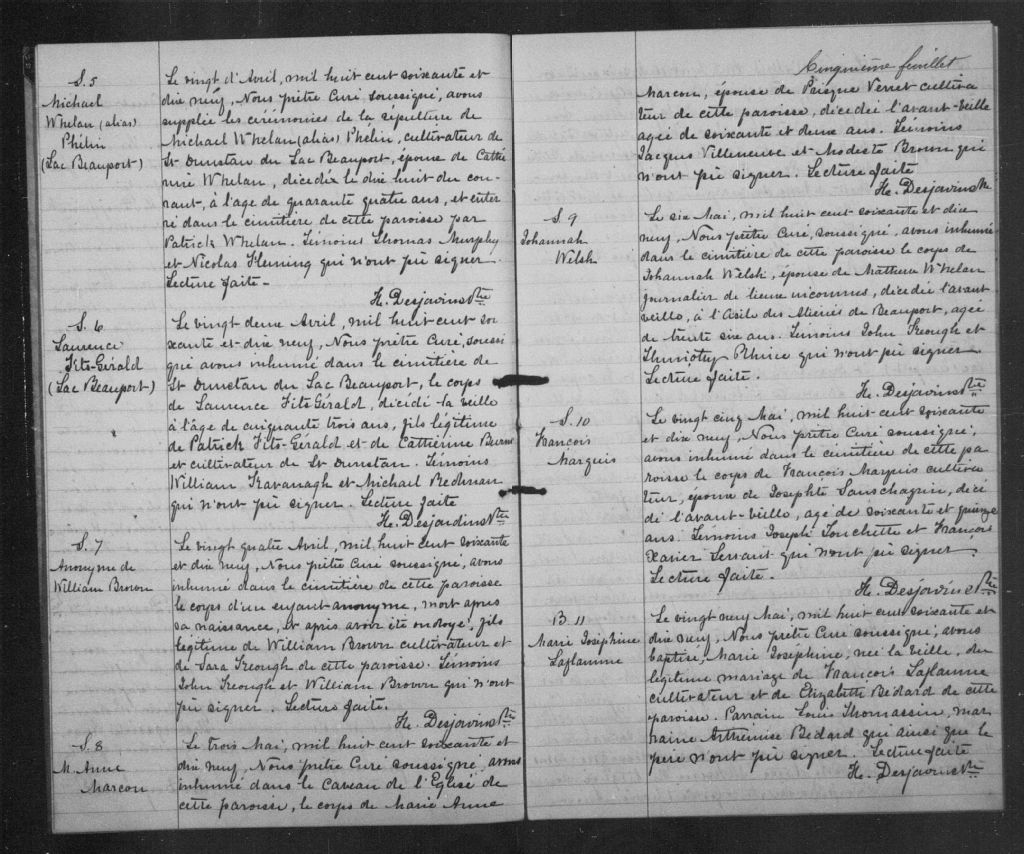 S. 5
Michael
Whelan (alias)
Phélin
(Lac Beauport)
Le vingt d'Avril, mil huit cent soixante et
dix neuf, Nous prêtre Curé soussigné, avons
supplée les cérémonies de la sépulture de
Michael Whelan (alias) Phelin, cultivateur de
St Dunstan du Lac Beauport, époux de Cathe
rine Whelan, décédé le dix huit du cou-
rant, à l'age de quarante quatre ans, et enter
ré dans le cimitière de cette paroisse par
Patrick Whelan. Témoins Thomas Murphy
et Nicolas Fleming qui n'ont pû signer.
Lecture faite -
H. Desjardins Ptre
S. 6
Laurence
Fits-Gérald
(Lac Beauport)
Le vingt deux Avril, mil huit cent soi
xante et dix neuf, Nous prêtre Curé, soussi
gné avons inhumé dans le cimitière de
St Dunstan du Lac Beauport, le corps
de Laurence Fits Gérald, décédé la veille
à l'âge de cinquante trois ans, fils légitime
de Patrick Fits-Gérald et de Cathérine Burne
et cultivateur de St Dunstan. Témoins
William Kavanagh et Michael Redman
qui n'ont pû signer. Lecture faite
H. Desjardins Ptre
S. 7
Anonyme de
William Brown
Le vingt quatre Avril, mil huit cent soixante
et dix neuf, Nous prêtre Curé soussigné, avons
inhumé dans le cimitière de cette paroisse
le corps d'un enfant anonyme, mort apres
sa naissance, et après avoir été ondoyé, fils
légitime de William Brown cultivateur et
de Sara Keough de cette paroisse. Témoins
John Keough et William Brown qui n'ont
pû signer. Lecture faite.
H. Desjardins Ptre
S. 8
M. Anne
Marcou
Le trois Mai, mil huit cent soixante et
dix neuf, Nous prêtre Curé soussigné avons
inhumé dans le Caveau de l'Eglise de
cette paroisse, le corps de Marie Anne
Cinquième feuillet
Marcou, épouse de Prisque Verret cultiva
teur de cette paroisse, décédée l'avant-veille
agée de soixante et deux ans. Témoins
Jacques Villeneuve et Modeste Brown qui
n'ont pû signer. Lecture faite
H. Desjardins Ptre
S. 9
Johannah
Welsh
Le six Mai, mil huit cent soixante et dix
neuf, Nous prêtre Curé, soussigné, avons inhumé
dans le cimitière de cette paroisse le corps de
Johannah Welsh, épouse de Mathew Whelan
journalier de lieux inconnus, décédée l'avant
veille, à l'Asile des Aliénés de Beauport, agée
de trente six ans. Témoins John Keough et
qui n'ont pû signer
Lecture faite.
H. Desjardins Ptre
S. 10
François
Marquis
Le vingt cinq Mai, mil huit cent soixante
et dix neuf, Nous prêtre Curé soussigné,
avons inhumé dans le cimitière de cette pa
roisse le corps de François Marquis cultiva
teur, époux de Josephte Sanschagrin, décé
dé l'avant-veille, agé de soixante et quinze
ans. Témoins Joseph Touchette et François
Xavier Servant qui n'ont pû signer
Lecture faite.
H. Desjardins Ptre
B. 11
Marie Joséphine
Laflamme
Le vingt neuf Mai, mil huit cent soixante et
dix neuf, Nous prêtre Curé soussigné, avons
baptisé, Marie Joséphine, née la veille, du
légitime mariage de François Laflamme
cultivateur et de Elizabeth Bédard de cette
paroisse. Parrain Louis Thomassin, mar
raine Arthémise Bedard qui ainsi que le
père n'ont pû signer. Lecture faite
H. Desjardins Ptre